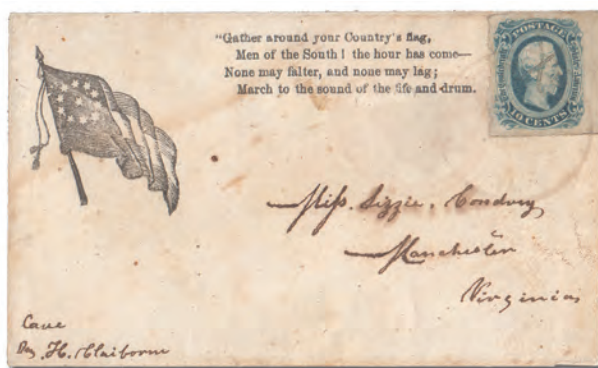 "Gather around your Country's flag,
Men of the South! the hour has come—
None may falter, and none may lag;
March to the sound of the fife and drum.
POSTAGE
10 CENTS
Miss. Lizzie.
Manchester
Virginia
Care
H. Claiborne